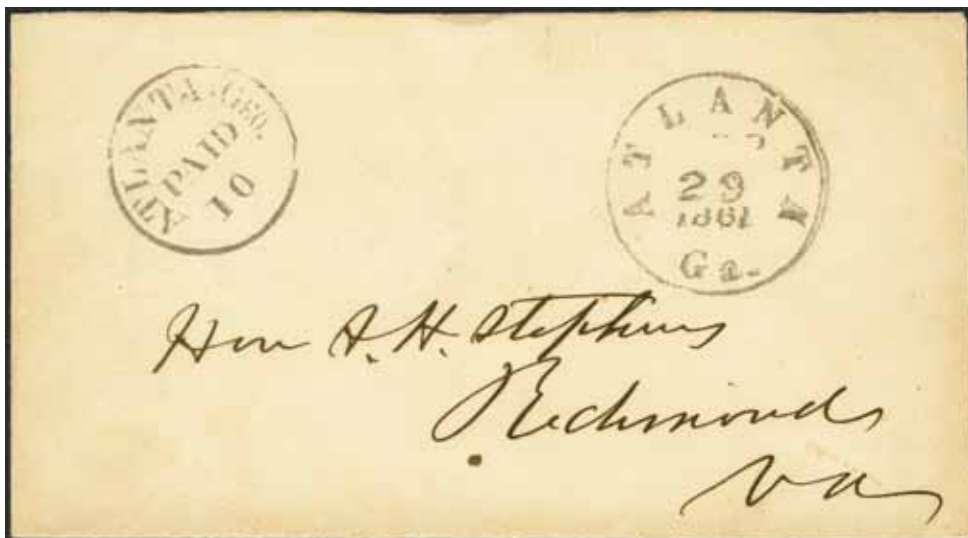 ATLANTA, GEO.
PAID
10
ATLANTA
29
1861
Ga.
Hon A. H. Stephens
Richmond
Va